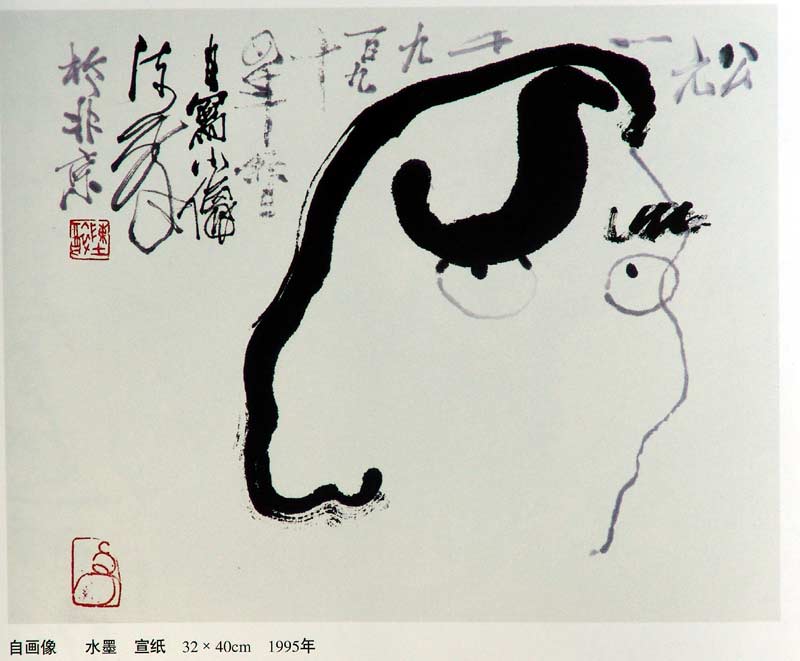 公元一千九百九十
四年十
自寫小像
陈醉
於北京
自画像 水墨 宣纸 32×40cm 1995年